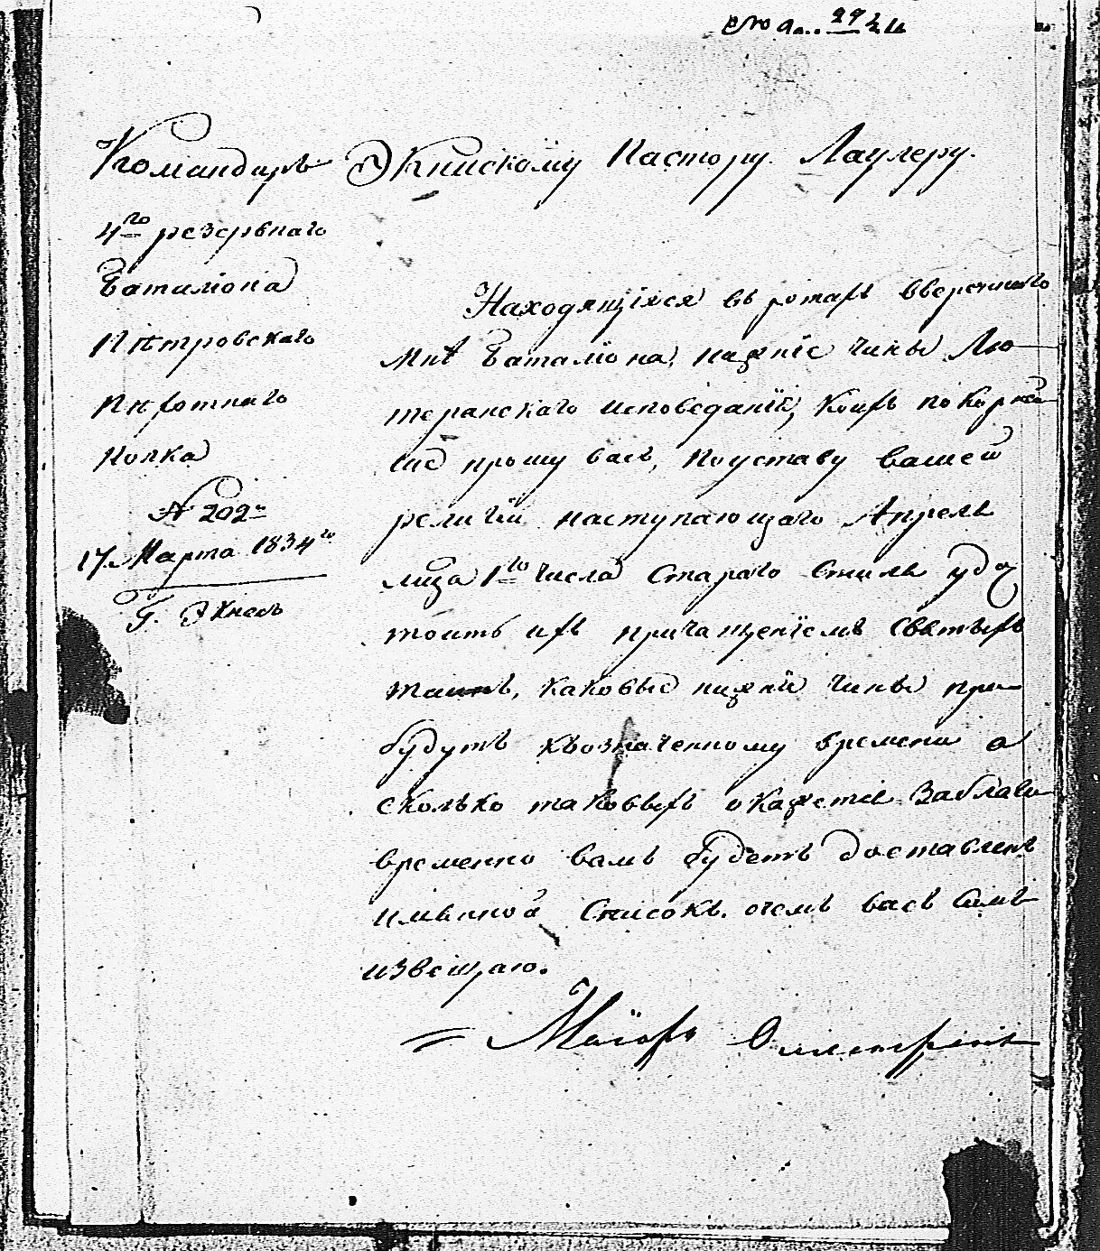 Командиръ
4го резервнаго
Баталіона
Пѣтровскаго
Пѣхотнаго
Полка
№ 202й
17. Марта 1834го
Г. Экнесъ
Экнискому Пастору Лаулеру.
Находящіяся въ ротахъ ввереннаго
мнѣ Баталіона, нижніе чины Лю-
теранскаго исповеданій, коихъ покорней
ше прошу васъ, поуставу вашей
религіи наступающаго Апреля
м-ца 1го числа Стараго Стиля удо
тоить ихъ причащеніемъ Святыхъ
таинъ, каковые нижніе чины при-
будутъ къозначенному времени а
сколько таковыхъ окажется Заблаго
временно вамъ будетъ доставленъ
имянной Списокъ. очемъ васъ Симъ
извещаю.
Маіоръ